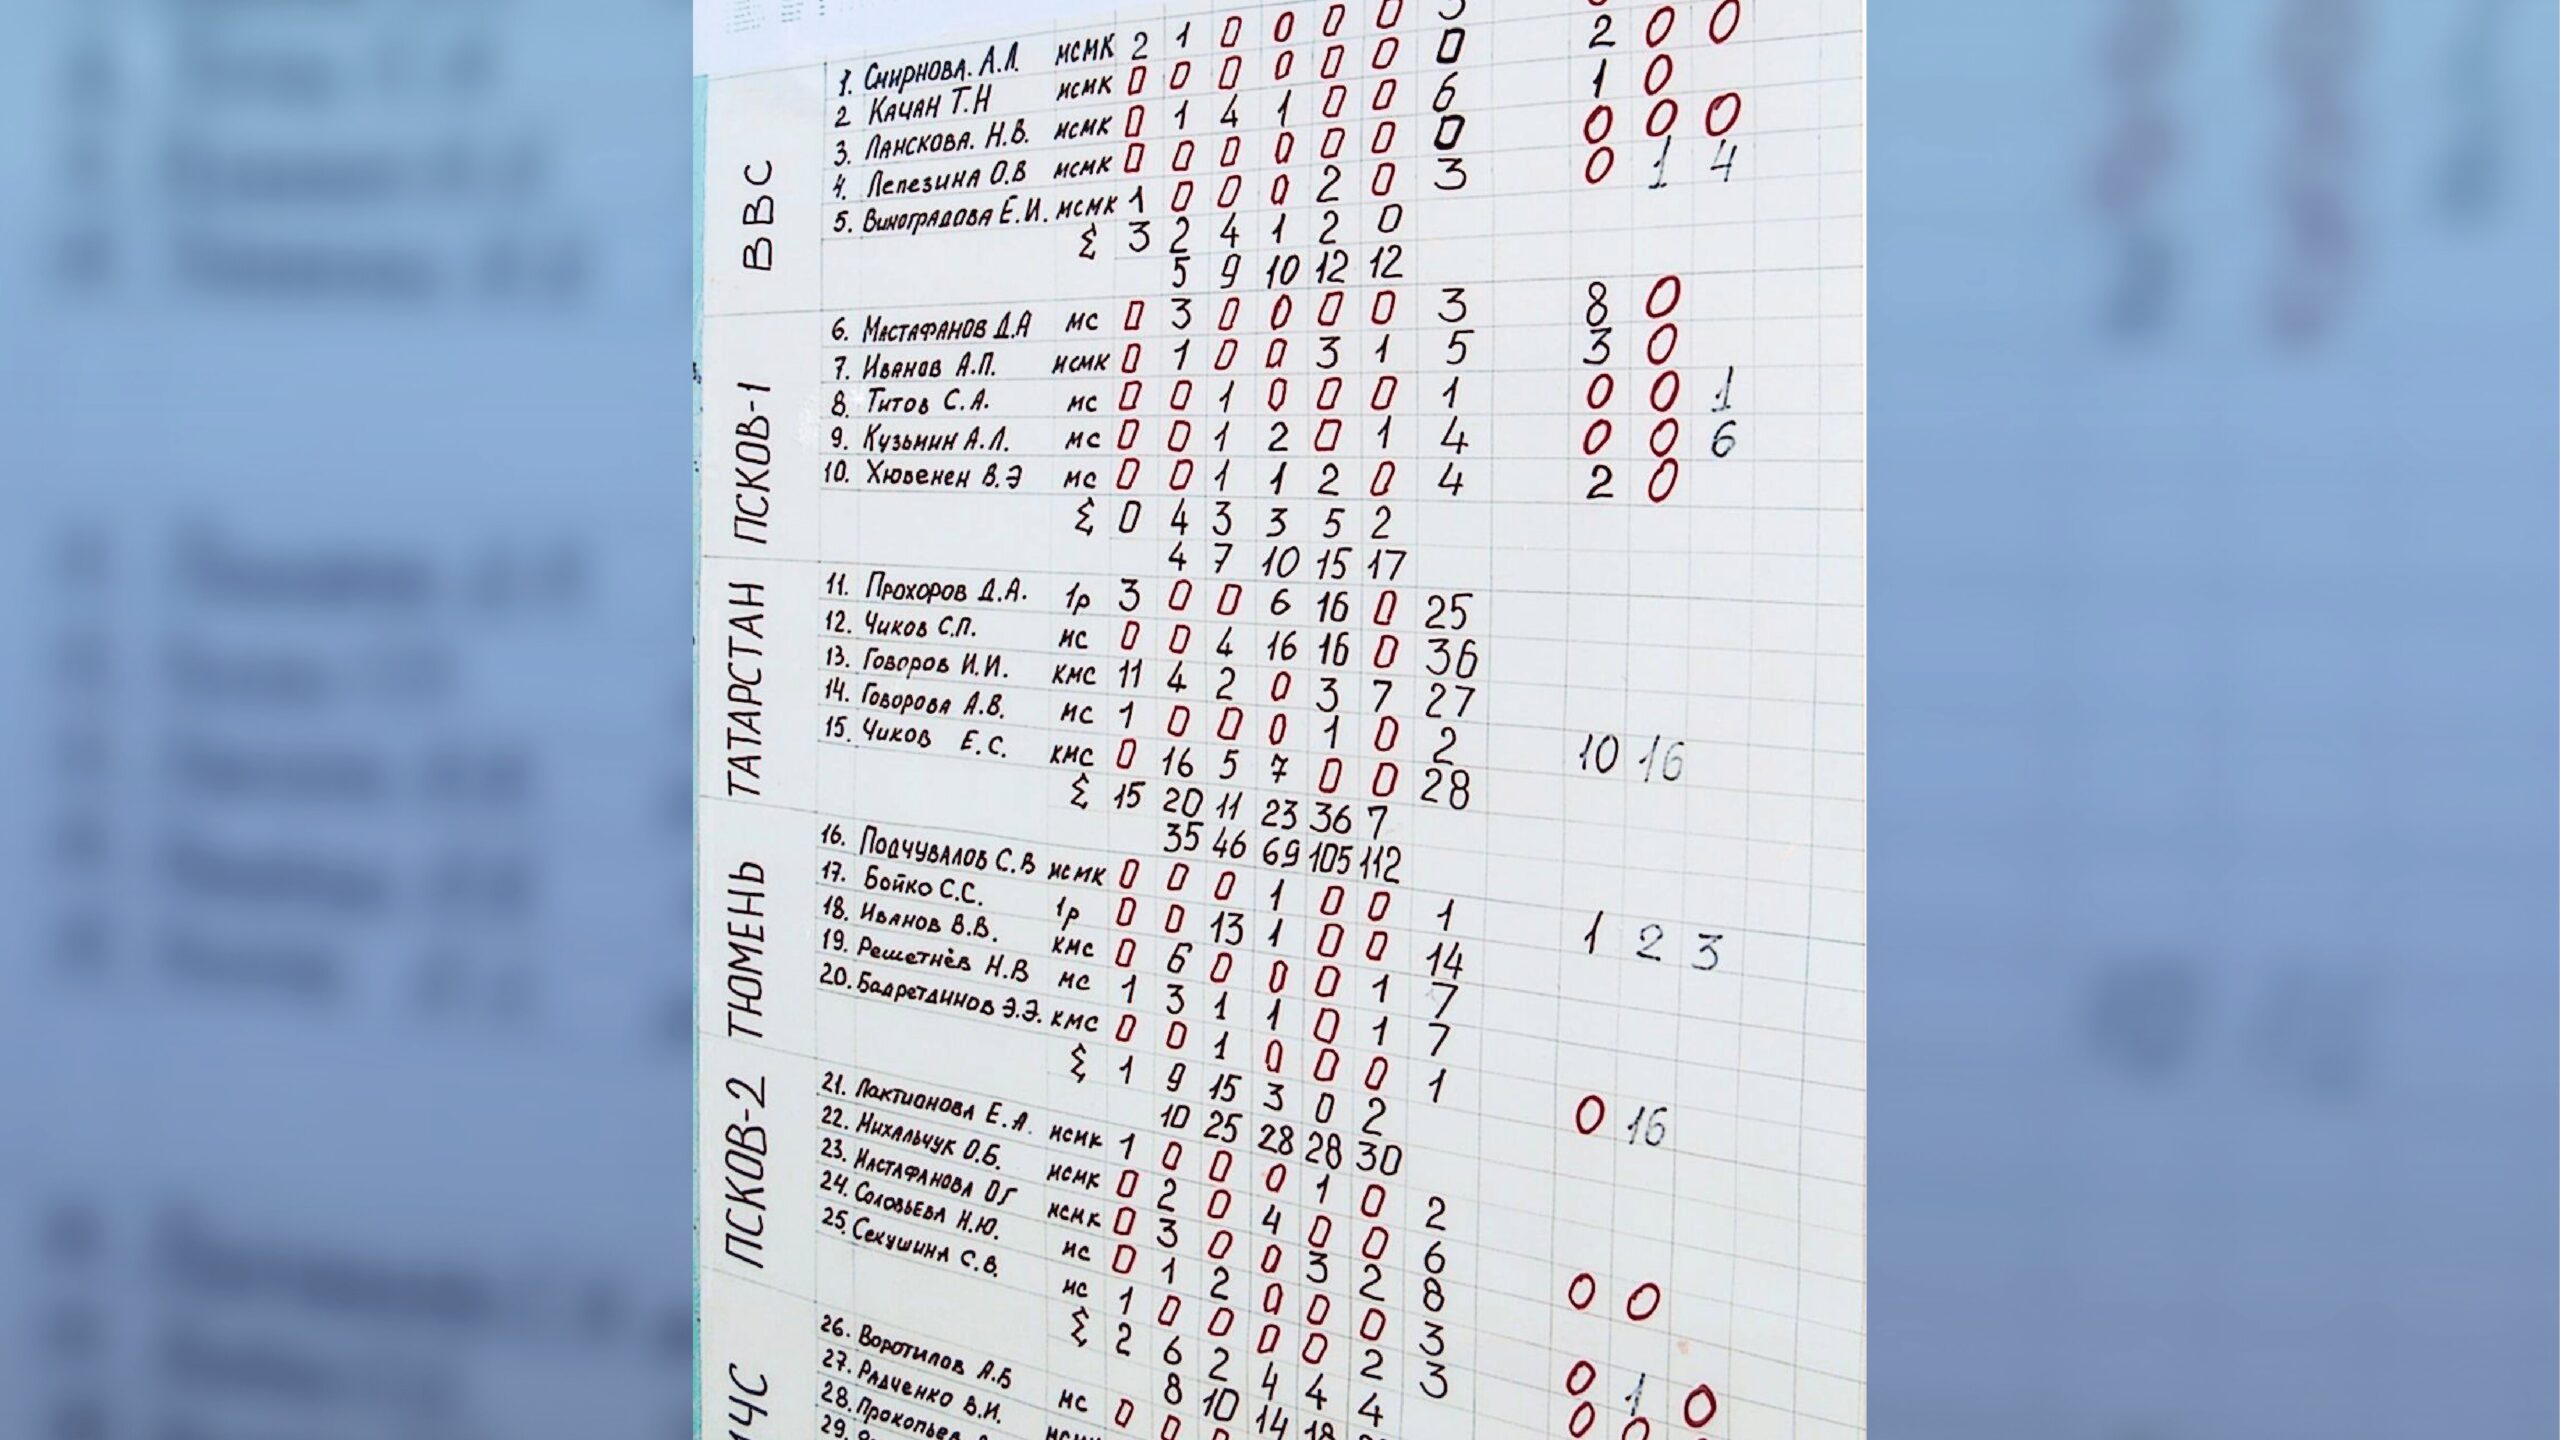 ВВС
1. Смирнова. А.Л. мсмк 2 1 0 0 0 0 3
2 Качан Т.Н мсмк 0 0 0 0 0 0 0 2 0 0
3. Ланскова. Н.В. мсмк 0 1 4 1 0 0 6 1 0
4. Лепезина О.В мсмк 0 0 0 0 0 0 0 0 0 0
5. Виноградова Е.И. мсмк 1 0 0 0 2 0 3 0 1 4
Σ 3 2 4 1 2 0
5 9 10 12 12
ПСКОВ-1
6. Мастафанов Д.А мс 0 3 0 0 0 0 3 8 0
7. Иванов А.П. мсмк 0 1 0 0 3 1 5 3 0
8. Титов С.А. мс 0 0 1 0 0 0 1 0 0 1
9. Кузьмин А.Л. мс 0 0 1 2 0 1 4 0 0 6
10. Хювенен В.Э мс 0 0 1 1 2 0 4 2 0
Σ 0 4 3 3 5 2
4 7 10 15 17
ТАТАРСТАН
11. Прохоров Д.А. 1р 3 0 0 6 16 0 25
12. Чиков С.П. мс 0 0 4 16 16 0 36
13. Говоров И.И. кмс 11 4 2 0 3 7 27
14. Говорова А.В. мс 1 0 0 0 1 0 2 10 16
15. Чиков Е.С. кмс 0 16 5 7 0 0 28
Σ 15 20 11 23 36 7
35 46 69 105 112
ТЮМЕНЬ
16. Подчувалов С.В мсмк 0 0 0 1 0 0 1 1 2 3
17. Бойко С.С. 1р 0 0 13 1 0 0 14
18. Иванов В.В. кмс 0 6 0 0 0 1 7
19. Решетнёв Н.В мс 1 3 1 1 0 1 7
20. Бадретдинов Э.Э. кмс 0 0 1 0 0 0 1 0 16
Σ 1 9 15 3 0 2
10 25 28 28 30
ПСКОВ-2
21. Лактионова Е.А. мсмк 1 0 0 0 1 0 2
22. Михальчук О.Б. мсмк 0 2 0 4 0 0 6
23. Мастафанова ОГ мсмк 0 3 0 0 3 2 8 0 0
24. Соловьева Н.Ю. мс 0 1 2 0 0 0 3
25. Секушина С.В. мс 1 0 0 0 0 2 3 0 1 0
Σ 2 6 2 4 4 4
8 10 14 18
МЧС
26. Воротилов А.Б мс 0 0
27. Радченко В.И.
28. Прокопьев
29.